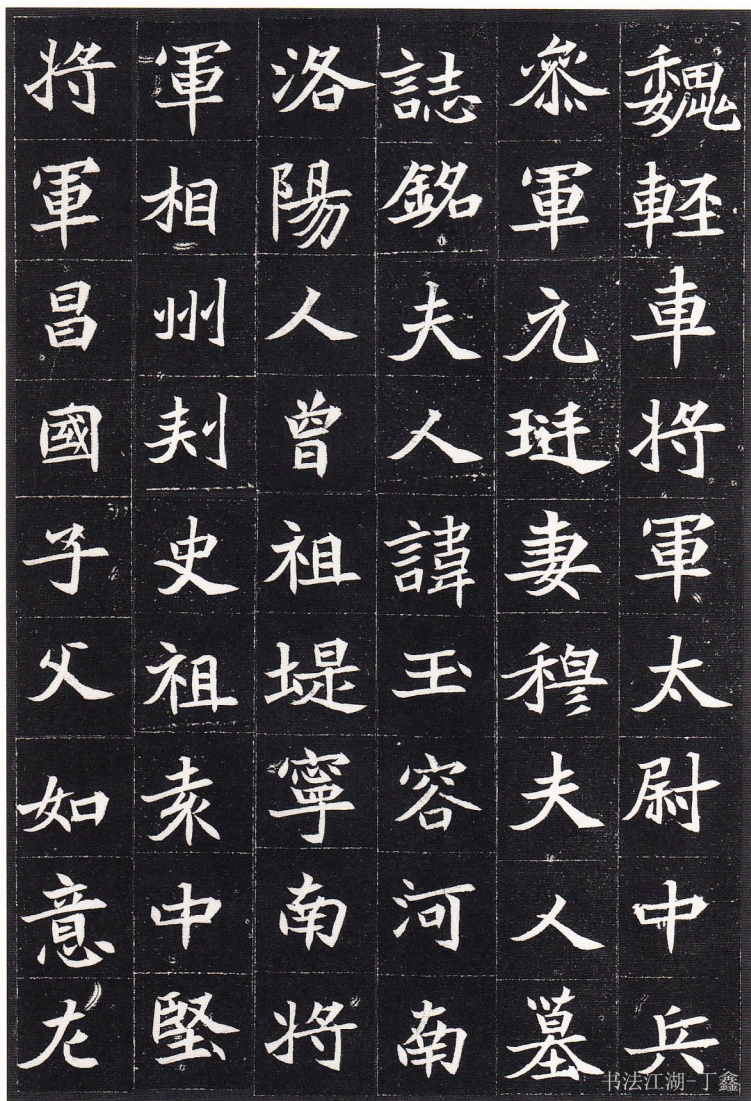 魏輕車将軍太尉中兵
叅軍元珽妻穆夫人墓
誌銘夫人諱玉容河南
洛陽人曾祖堤寧南将
軍相州刾史祖袁中堅
将軍昌國子父如意左
书法江湖-丁鑫